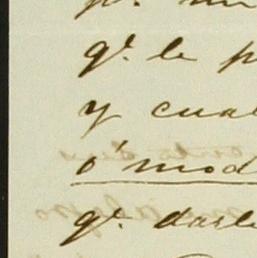 qe. le p
y cual
o' mod
qe. darle